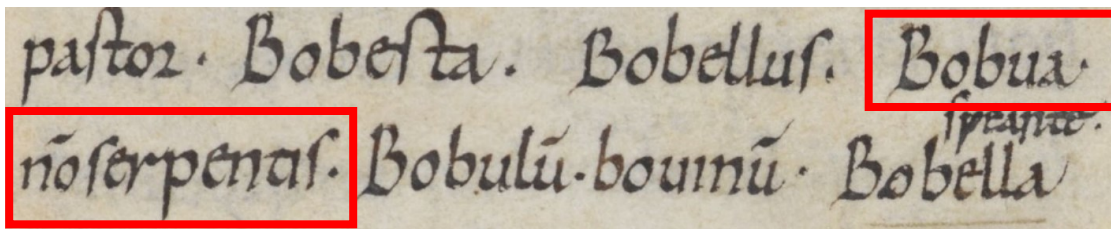 pastor. Bobesta. Bobellus. Bobua.
nōserpentis. Bobulū. bouinū. Bobella